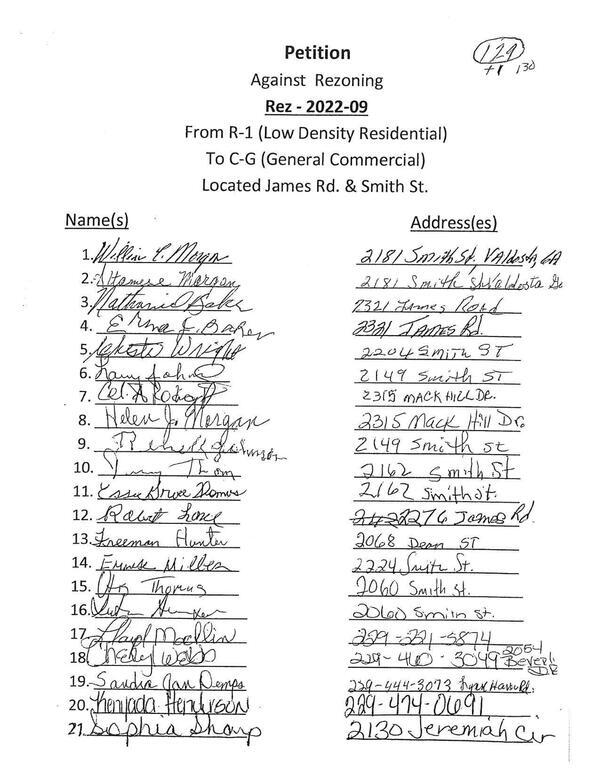 Petition
129
+1 130
Against Rezoning
Rez - 2022-09
From R-1 (Low Density Residential)
To C-G (General Commercial)
Located James Rd. & Smith St.
Name(s) Address(es)
1. Morgan 2181 Smith St, Valdosta, GA
2. Morgan 2181 Smith St Valdosta Ga
3. Nathaniel Baker 2321 James Road
4. Erma J. Baker 2321 James Rd.
5. Wright 2204 Smith ST
6. 2149 Smith ST
7. 2315 MACK HILL DR.
8. Helen J. Morgan 2315 Mack Hill Dr.
9. Johnson 2149 Smith st
10. 2162 Smith St
11. 2162 Smith st.
12. Robert 2276 James Rd.
13. Freeman Hunter 2068 Dean ST
14. 2224 Smith St.
15. Thomas 2060 Smith st.
16. 2060 Smith st.
17. 229-221-5874
18. 229-460-3049 2054
Dr
19. Sandra Jan Demps 229-444-3073
20. Kenyada Henderson 229-474-0691
21. Sophia Sharp 2130 Jeremiah Cir